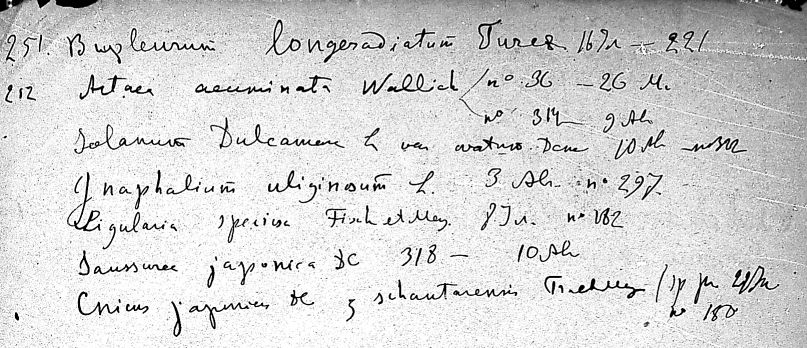 251. Bupleurum longeradiatum Turcz 16 Jл — 221
212 Actaea acuminata Wallich / n° 36 — 26 M.
n° 314 9 Ah
Solanum Dulcamara L var ovatum Dun 10 Ah
Gnaphalium uliginosum L. 3 Ah. n° 297
Ligularia speciosa Fisch et Mey. 8 Jл. n° 182
Saussurea japonica DC 318 — 10 Ah
Cnicus japonicus DC schantarensis
n° 180